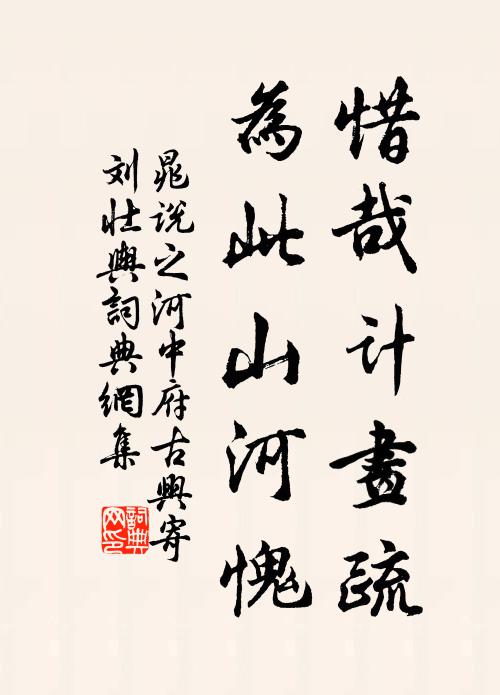 惜哉计畫疏
為此山河愧
晁说之河中府古興寄
刘壮輿詞典網集
詞典网印